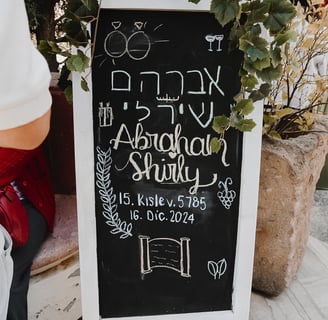 אברהם
שירלי
Abraham
Shirly
15. Kislev. 5785
16. Dic. 2024